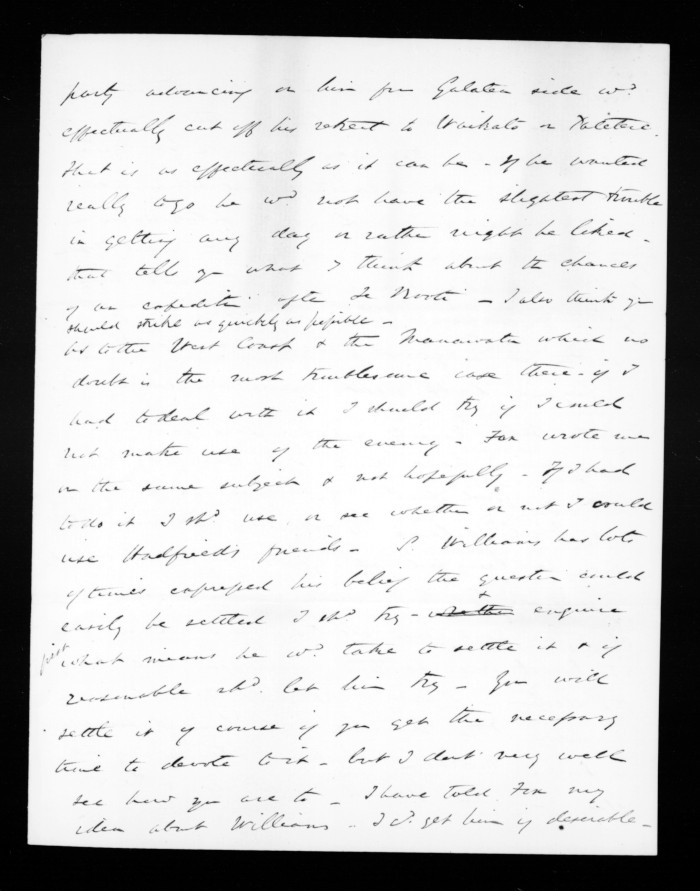 party advancing on him from Galatea side wd.
effectually cut off his retreat to Waikato or Patetere.
that is as effectually as it can be - If he wanted
really to go he wd. not have the slightest trouble
in getting any day or rather night he liked -
that tells you what I think about the chances
of an expedition after Te Kooti - I also think you
should strike as quickly as possible -
As to the West Coast & the Manawatu which no
doubt is the most troublesome case there - if I
had to deal with it I should try if I could
not make use of the enemy - Fox wrote me
on the same subject & not hopefully - If I had
to do it I shd. use, or see whether or not I could
use Hadfield's friends - S. Williams has lots
of times expressed his belief the question could
easily be settled I shd. try - & enquire
first what means he wd. take to settle it & if
reasonable shd. let him try - You will
settle it of course if you get the necessary
time to devote to it - but I don't very well
see how you are to - I have told Fox my
idea about Williams - I cd. get him if desirable -